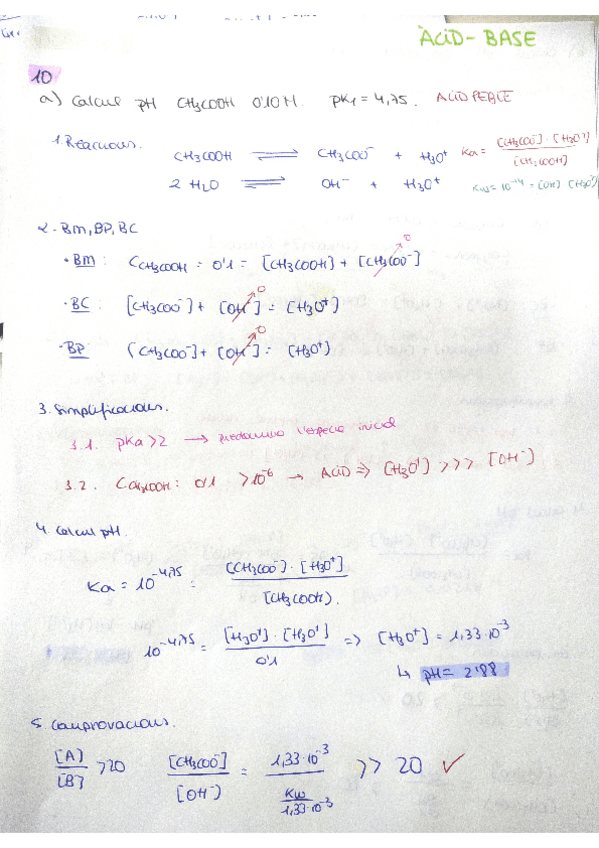 ÀCID-BASE
10
a) Calcul pH CH3COOH 0'10 M. pKa = 4,75. ACID FEBLE
1. Reaccions.
CH3COOH ⇌ CH3COO⁻ + H3O⁺ Ka = [CH3COO⁻]·[H3O⁺] / [CH3COOH]
2 H2O ⇌ OH⁻ + H3O⁺ Kw = 10⁻¹⁴ = [OH⁻] [H3O⁺]
2. BM, BP, BC
· BM : C CH3COOH = 0'1 = [CH3COOH] + [CH3COO⁻] → 0
· BC : [CH3COO⁻] + [OH⁻] → 0 = [H3O⁺]
· BP [CH3COO⁻] + [OH⁻] → 0 = [H3O⁺]
3. Simplificacions.
3.1. pKa > 2 → predomina l'espècie inicial
3.2. C CH3COOH : 0'1 > 10⁻⁶ → ACID ⇒ [H3O⁺] >>> [OH⁻]
4. Calcul pH.
Ka = 10⁻⁴·⁷⁵ = [CH3COO⁻]·[H3O⁺] / [CH3COOH].
10⁻⁴·⁷⁵ = [H3O⁺]·[H3O⁺] / 0'1 ⇒ [H3O⁺] = 1,33·10⁻³
↳ pH = 2'88
5. Comprovacions.
[A] / [B] > 20 [CH3COO⁻] / [OH⁻] = 1,33·10⁻³ / (Kw / 1,33·10⁻³) >> 20 ✓